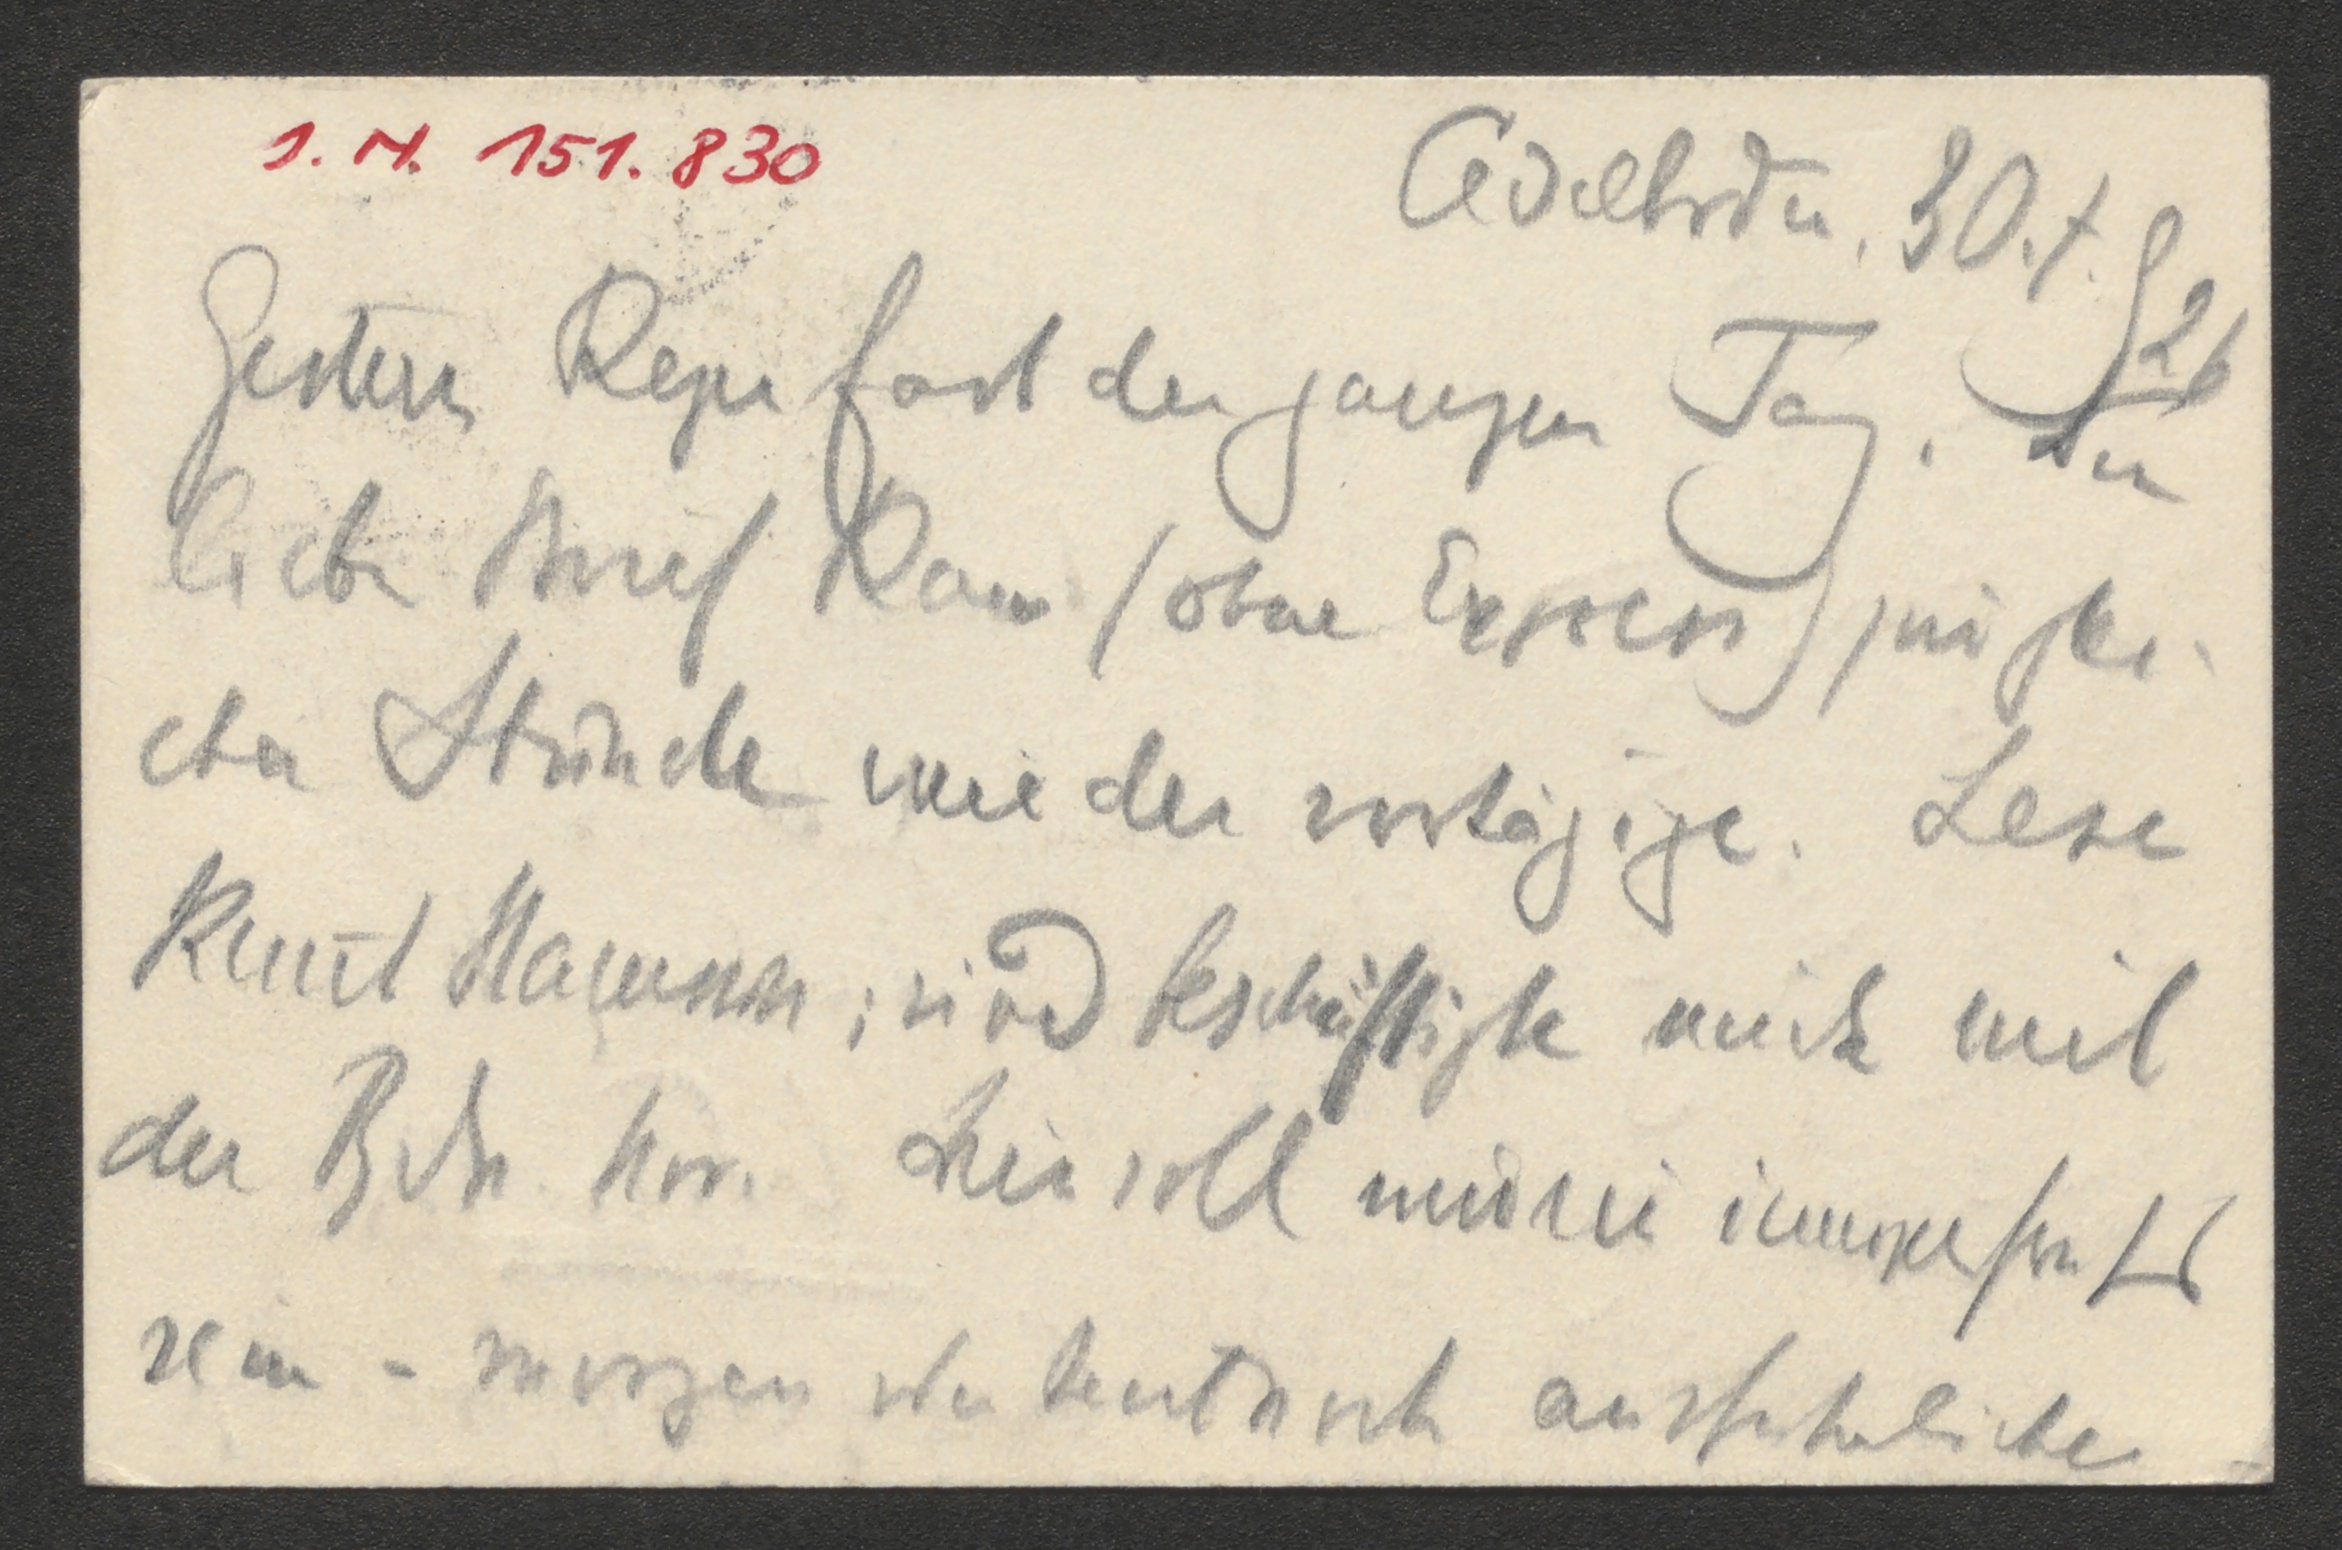 I.N. 151.830
Adelboden, 30.7.926
Gestern Regen fast den ganzen Tag. Dein
lieber Brief kam (ohne Express) zur glei-
chen Stunde wie der vortägige. Lese
Knut Hamsun, und beschäftigte mich mit
der Bdn. Nov. Leise soll
sein – morgen oder heute noch ausführlicher